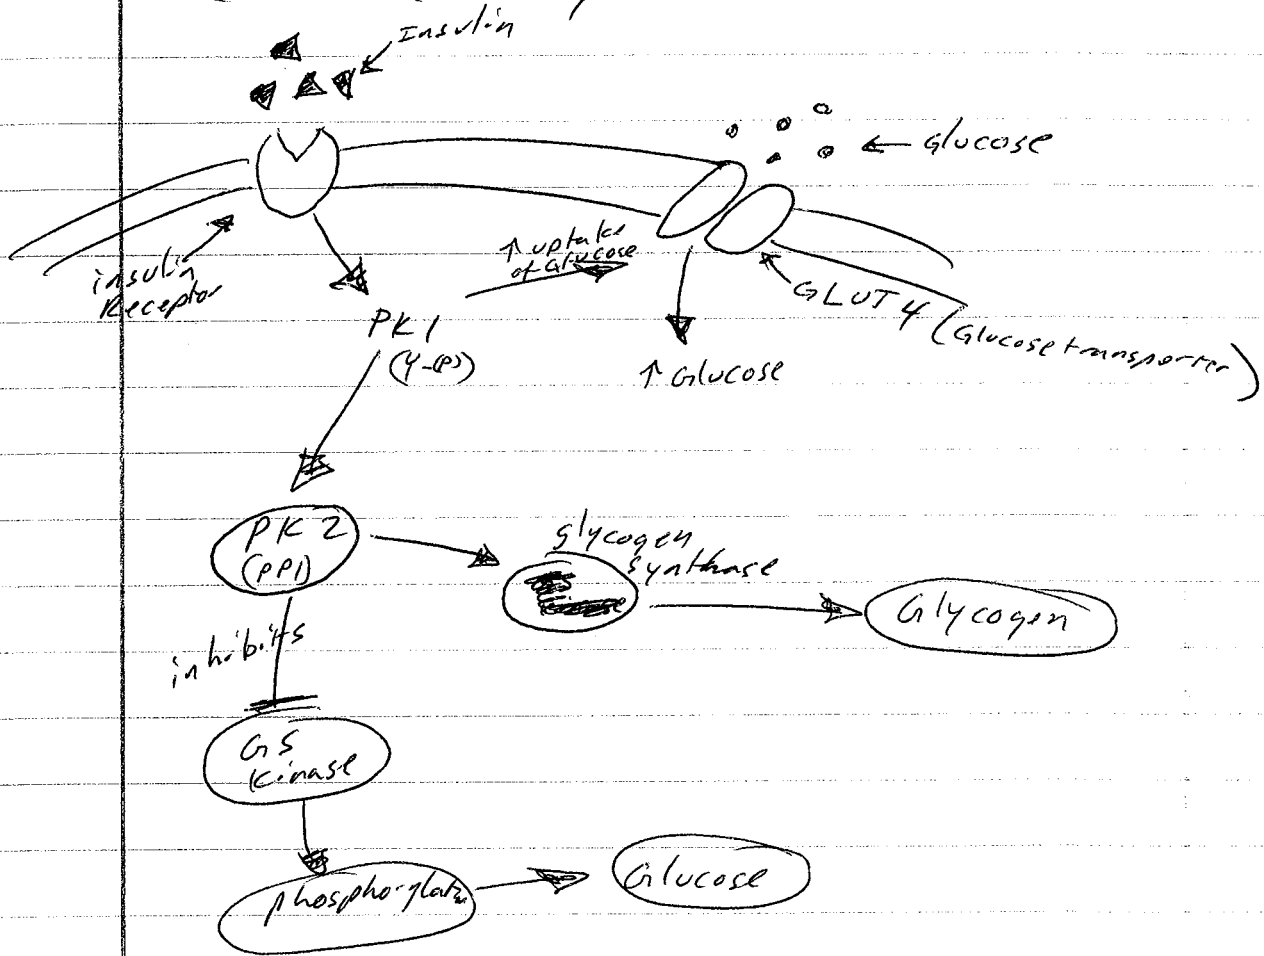 Insulin
Glucose
insulin
Receptor
↑ uptake
of Glucose
GLUT 4 (Glucose transporter)
PK1
↑ Glucose
PK2
(PP1)
glycogen
synthase
Glycogen
inhibits
GS
Kinase
Glucose